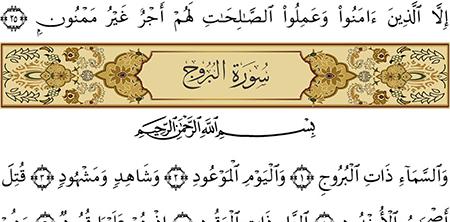 إِلَّا الَّذِينَ ءَامَنُوا۟ وَعَمِلُوا۟ الصَّـٰلِحَـٰتِ لَهُمْ أَجْرٌ غَيْرُ مَمْنُونٍۭ ﴿٢٥﴾
سُورَةُ الْبُرُوجِ
بِسْمِ اللَّهِ الرَّحْمَـٰنِ الرَّحِيمِ
وَالسَّمَآءِ ذَاتِ الْبُرُوجِ ﴿١﴾ وَالْيَوْمِ الْمَوْعُودِ ﴿٢﴾ وَشَاهِدٍ وَمَشْهُودٍ ﴿٣﴾ قُتِلَ